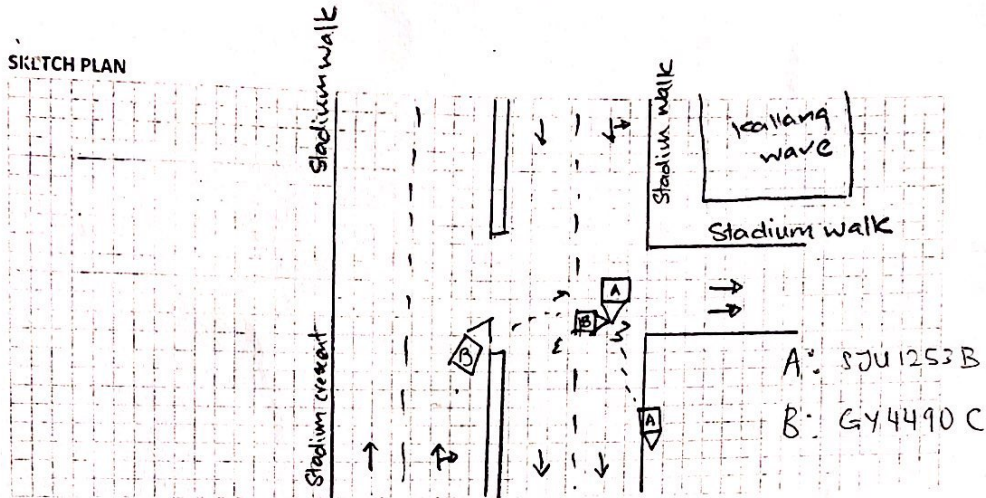 SKETCH PLAN
Stadium walk
Stadium walk
kallang
wave
Stadium walk
A
B
B
Stadium crescent
A
A: SJU1253B
B: GY4490C